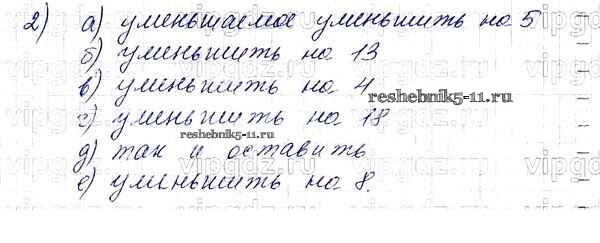 2) а) уменьшаемое уменьшить на 5
б) уменьшить на 13
в) уменьшить на 4
reshebnik5-11.ru
г) уменьшить на 18
reshebnik5-11.ru
д) так и оставить
е) уменьшить на 8.